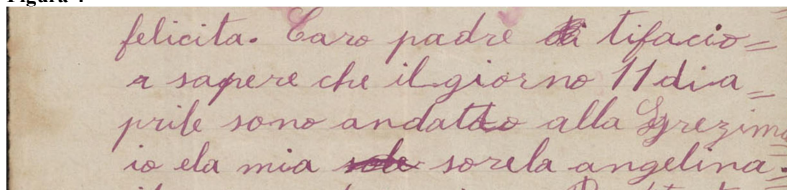 felicita. Caro padre tifacio=
a sapere che il giorno 11 dia=
prile sono andatto alla
io ela mia sorela angelina.